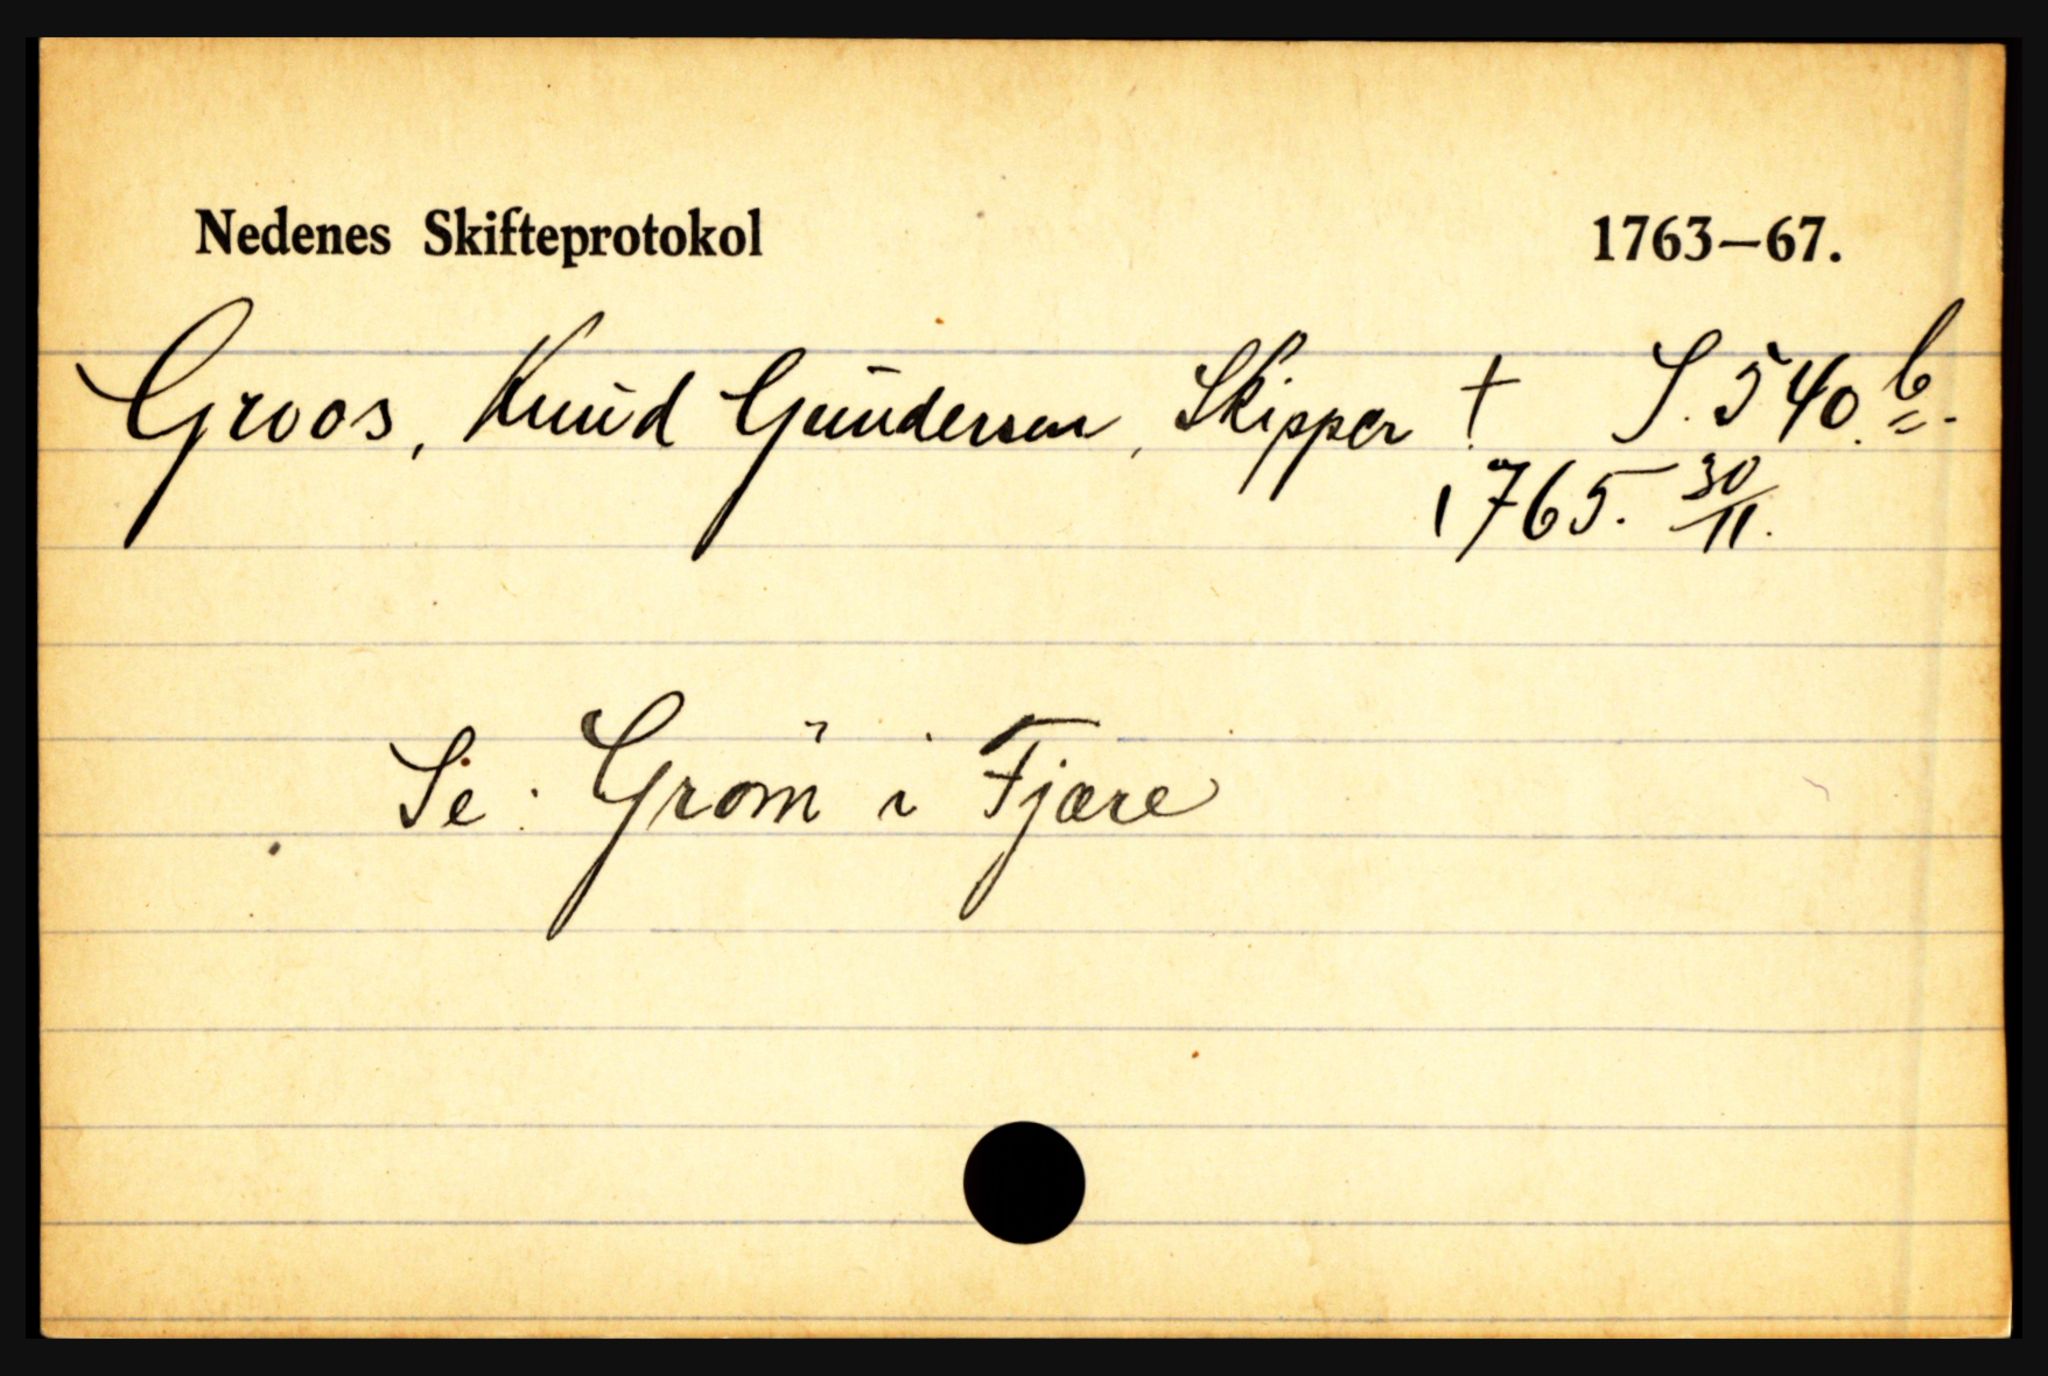 Nedenes Skifteprotokol 1763–67.
Groos, Knud Gundersen, Skipper † S. 540 b.
1765. 30/11.
Se: Grom i Fjære